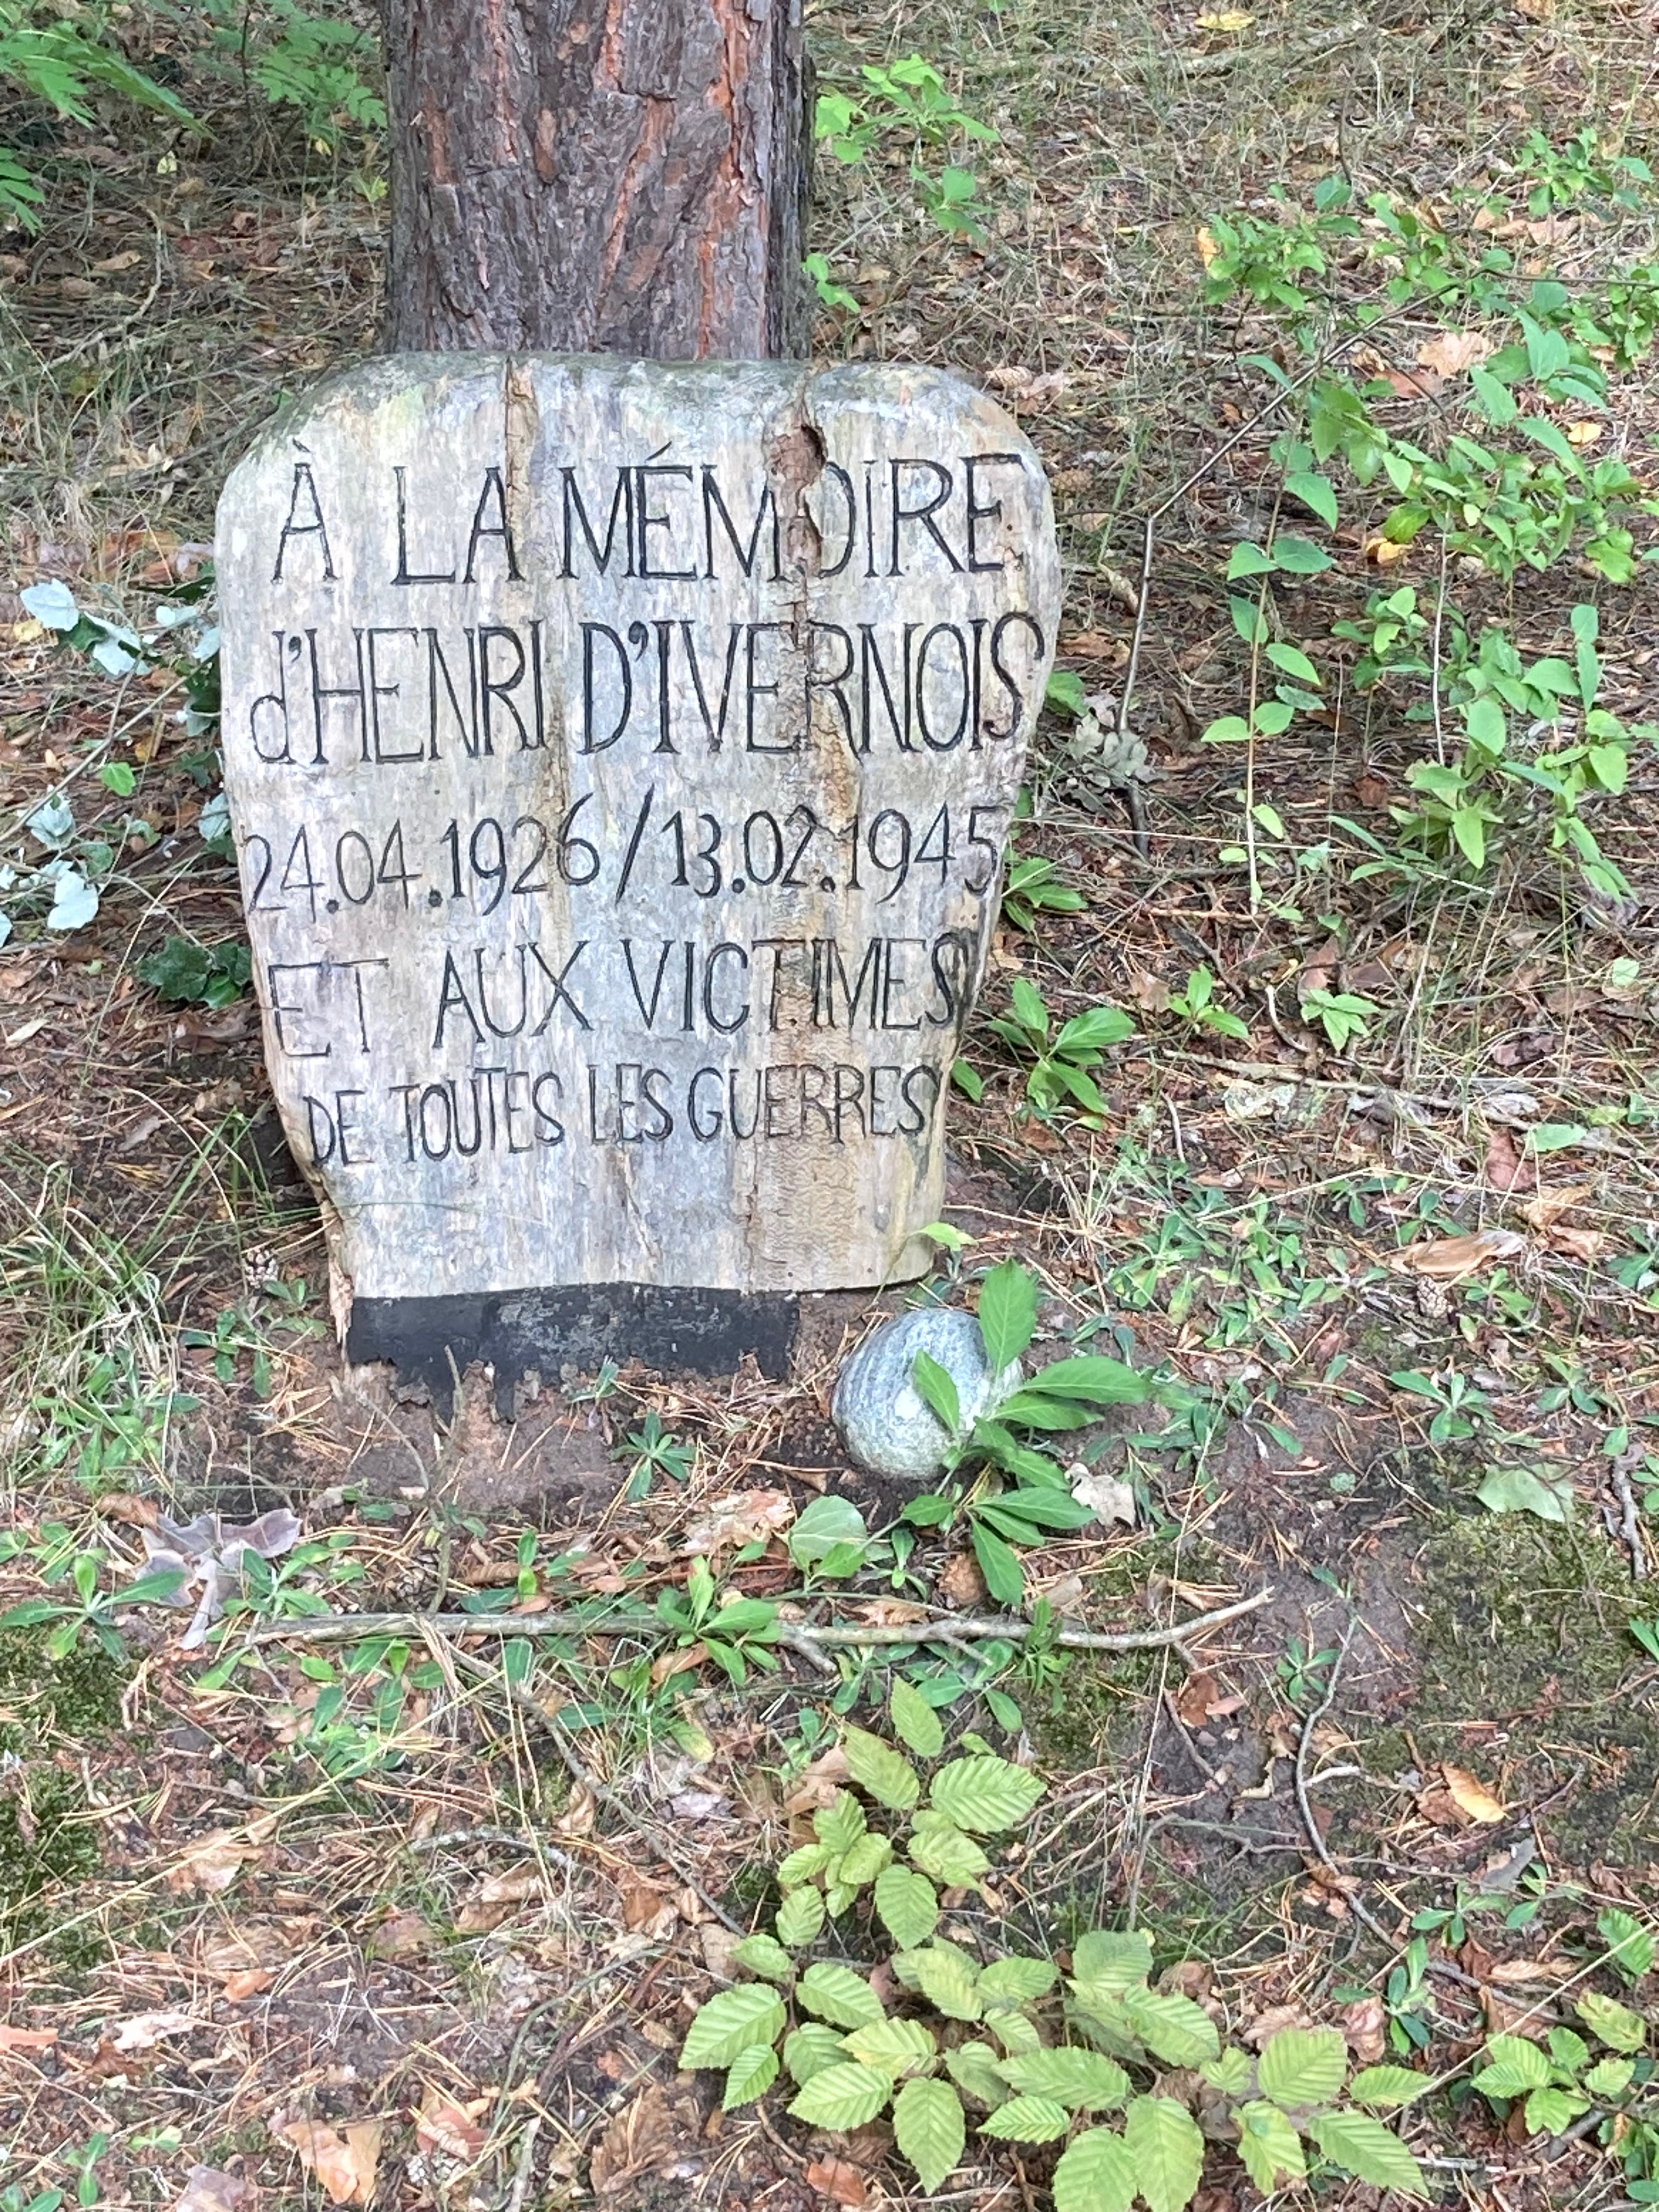 À LA MÉMOIRE
d'HENRI D'IVERNOIS
24.04.1926/13.02.1945
ET AUX VICTIMES
DE TOUTES LES GUERRES